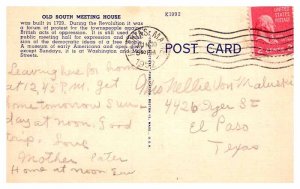 OLD SOUTH MEETING HOUSE
was built in 1729. During the Revolution it was
a forum of protest for the townspeople against
British acts of oppression. It is still used as a
public meeting hall for discussion and expression
of the democratic ideas of a free people.
A museum of early Americana and open every day
except Sundays, it is at Washington and Milk
Streets.
K1992
POST CARD
Leaving here for home
at 12,45 P.M. get
home tomorrow Sun-
day at noon. Good
Luck, Love
Mother Peter
Home at noon Sun
Miss Nellie Von
4426 Tyer St
El Paso
Texas